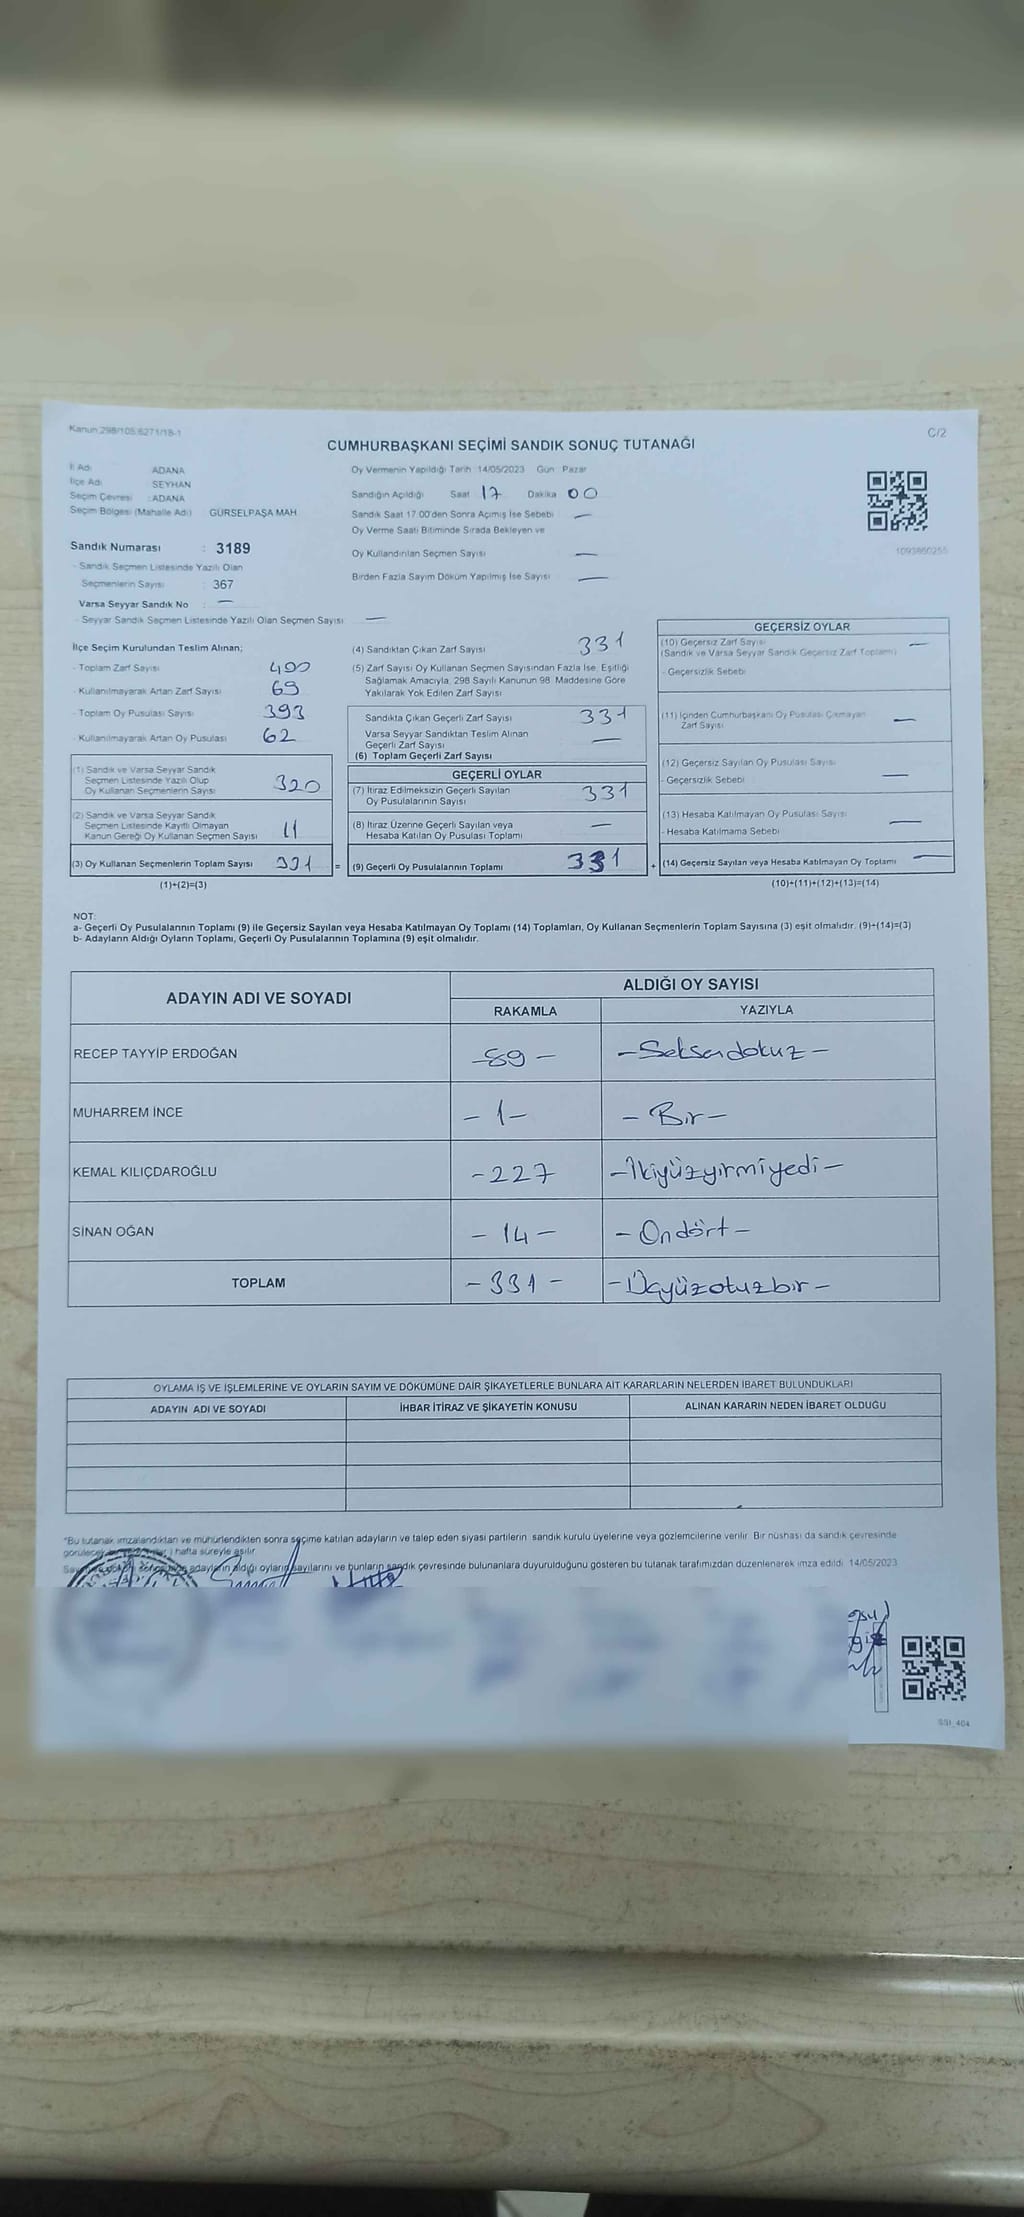 Kanun:298/105,6271/18-1
C/2
CUMHURBAŞKANI SEÇİMİ SANDIK SONUÇ TUTANAĞI
İl Adı ADANA
İlçe Adı SEYHAN
Seçim Çevresi : ADANA
Seçim Bölgesi (Mahalle Adı) GÜRSELPAŞA MAH.
Oy Vermenin Yapıldığı Tarih 14/05/2023 Gün Pazar
Sandığın Açıldığı Saat 17 Dakika 00
Sandık Saat 17:00'den Sonra Açımış İse Sebebi —
Oy Verme Saati Bitiminde Sırada Bekleyen ve
Oy Kullandırılan Seçmen Sayısı —
Birden Fazla Sayım Döküm Yapılmış İse Sayısı —
1093860255
Sandık Numarası : 3189
- Sandık Seçmen Listesinde Yazılı Olan
Seçmenlerin Sayısı : 367
Varsa Seyyar Sandık No : —
- Seyyar Sandık Seçmen Listesinde Yazılı Olan Seçmen Sayısı —
İlçe Seçim Kurulundan Teslim Alınan;
- Toplam Zarf Sayısı 400
- Kullanılmayarak Artan Zarf Sayısı 69
- Toplam Oy Pusulası Sayısı 393
- Kullanılmayarak Artan Oy Pusulası 62
(1) Sandık ve Varsa Seyyar Sandık
Seçmen Listesinde Yazılı Olup
Oy Kullanan Seçmenlerin Sayısı 320
(2) Sandık ve Varsa Seyyar Sandık
Seçmen Listesinde Kayıtlı Olmayan
Kanun Gereği Oy Kullanan Seçmen Sayısı 11
(3) Oy Kullanan Seçmenlerin Toplam Sayısı 331 =
(1)+(2)=(3)
(4) Sandıktan Çıkan Zarf Sayısı 331
(5) Zarf Sayısı Oy Kullanan Seçmen Sayısından Fazla İse, Eşitliği
Sağlamak Amacıyla, 298 Sayılı Kanunun 98. Maddesine Göre
Yakılarak Yok Edilen Zarf Sayısı
Sandıkta Çıkan Geçerli Zarf Sayısı 331
Varsa Seyyar Sandıktan Teslim Alınan
Geçerli Zarf Sayısı —
(6) Toplam Geçerli Zarf Sayısı
GEÇERLİ OYLAR
(7) İtiraz Edilmeksizin Geçerli Sayılan
Oy Pusulalarının Sayısı 331
(8) İtiraz Üzerine Geçerli Sayılan veya
Hesaba Katılan Oy Pusulası Toplamı —
(9) Geçerli Oy Pusulalarının Toplamı 331 +
GEÇERSİZ OYLAR
(10) Geçersiz Zarf Sayısı —
(Sandık ve Varsa Seyyar Sandık Geçersiz Zarf Toplamı)
- Geçersizlik Sebebi
(11) İçinden Cumhurbaşkanı Oy Pusulası Çıkmayan
Zarf Sayısı —
(12) Geçersiz Sayılan Oy Pusulası Sayısı
- Geçersizlik Sebebi —
(13) Hesaba Katılmayan Oy Pusulası Sayısı
- Hesaba Katılmama Sebebi —
(14) Geçersiz Sayılan veya Hesaba Katılmayan Oy Toplamı —
(10)+(11)+(12)+(13)=(14)
NOT:
a- Geçerli Oy Pusulalarının Toplamı (9) ile Geçersiz Sayılan veya Hesaba Katılmayan Oy Toplamı (14) Toplamları, Oy Kullanan Seçmenlerin Toplam Sayısına (3) eşit olmalıdır. (9)+(14)=(3)
b- Adayların Aldığı Oyların Toplamı, Geçerli Oy Pusulalarının Toplamına (9) eşit olmalıdır.
ADAYIN ADI VE SOYADI ALDIĞI OY SAYISI
RAKAMLA YAZIYLA
RECEP TAYYİP ERDOĞAN -89- -Seksendokuz-
MUHARREM İNCE -1- -Bir-
KEMAL KILIÇDAROĞLU -227 -İkiyüzyirmiyedi-
SİNAN OĞAN -14- -Ondört-
TOPLAM -331- -Üçyüzotuzbir-
OYLAMA İŞ VE İŞLEMLERİNE VE OYLARIN SAYIM VE DÖKÜMÜNE DAİR ŞİKAYETLERLE BUNLARA AİT KARARLARIN NELERDEN İBARET BULUNDUKLARI
ADAYIN ADI VE SOYADI İHBAR İTİRAZ VE ŞİKAYETİN KONUSU ALINAN KARARIN NEDEN İBARET OLDUĞU
*Bu tutanak imzalandıktan ve mühürlendikten sonra seçime katılan adayların ve talep eden siyasi partilerin sandık kurulu üyelerine veya gözlemcilerine verilir. Bir nüshası da sandık çevresinde
hafta süreyle asılır.
adayların aldığı oyların sayılarını ve bunların sandık çevresinde bulunanlara duyurulduğunu gösteren bu tutanak tarafımızdan düzenlenerek imza edildi. 14/05/2023
SSI_404